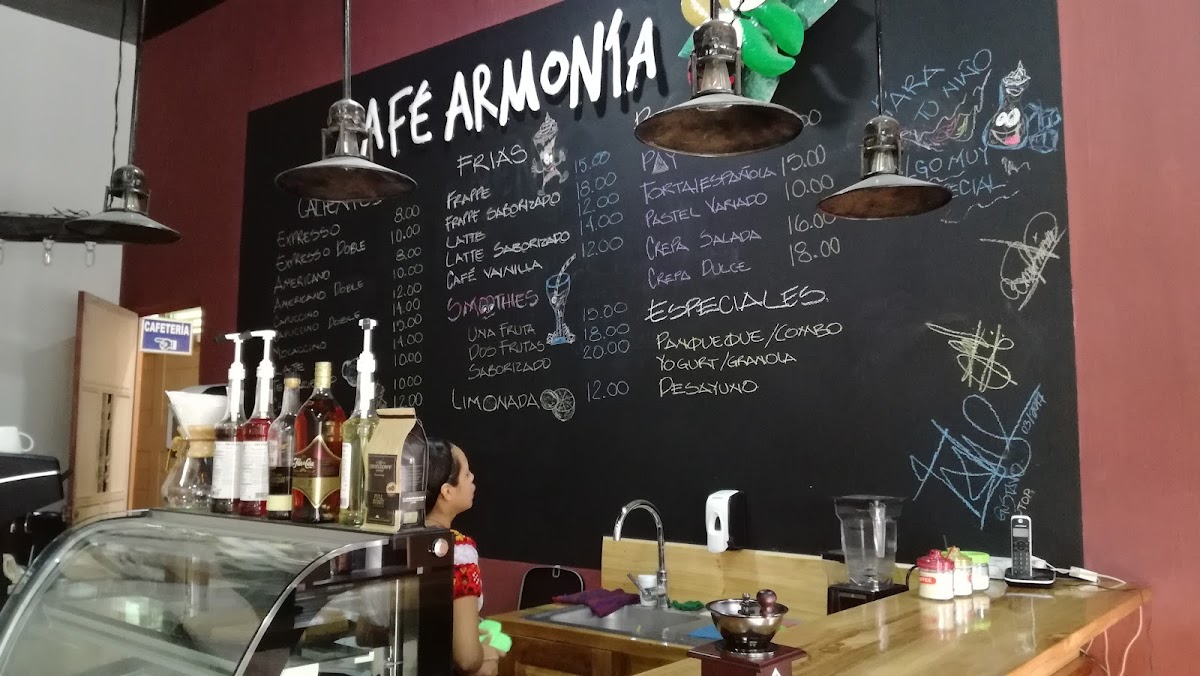 CAFÉ ARMONÍA
CALIENTES
EXPRESSO 8.00
EXPRESSO DOBLE 10.00
AMERICANO 8.00
AMERICANO DOBLE 10.00
CAPUCCINO 12.00
CAPUCCINO DOBLE 14.00
MOCACCINO 15.00
14.00
10.00
10.00
12.00
FRIAS
FRAPPE 15.00
FRAPPE SABORIZADO 18.00
LATTE 12.00
LATTE SABORIZADO 14.00
CAFÉ VAINILLA 12.00
SMOOTHIES
UNA FRUTA 15.00
DOS FRUTAS 18.00
SABORIZADO 20.00
LIMONADA 12.00
PAY
TORTA/ESPAÑOLA 15.00
PASTEL VARIADO 10.00
CREPA SALADA 16.00
CREPA DULCE 18.00
ESPECIALES
PANQUEQUE/COMBO
YOGURT/GRANOLA
DESAYUNO
PARA
TU NIÑO
ALGO MUY
ESPECIAL
CAFETERÍA